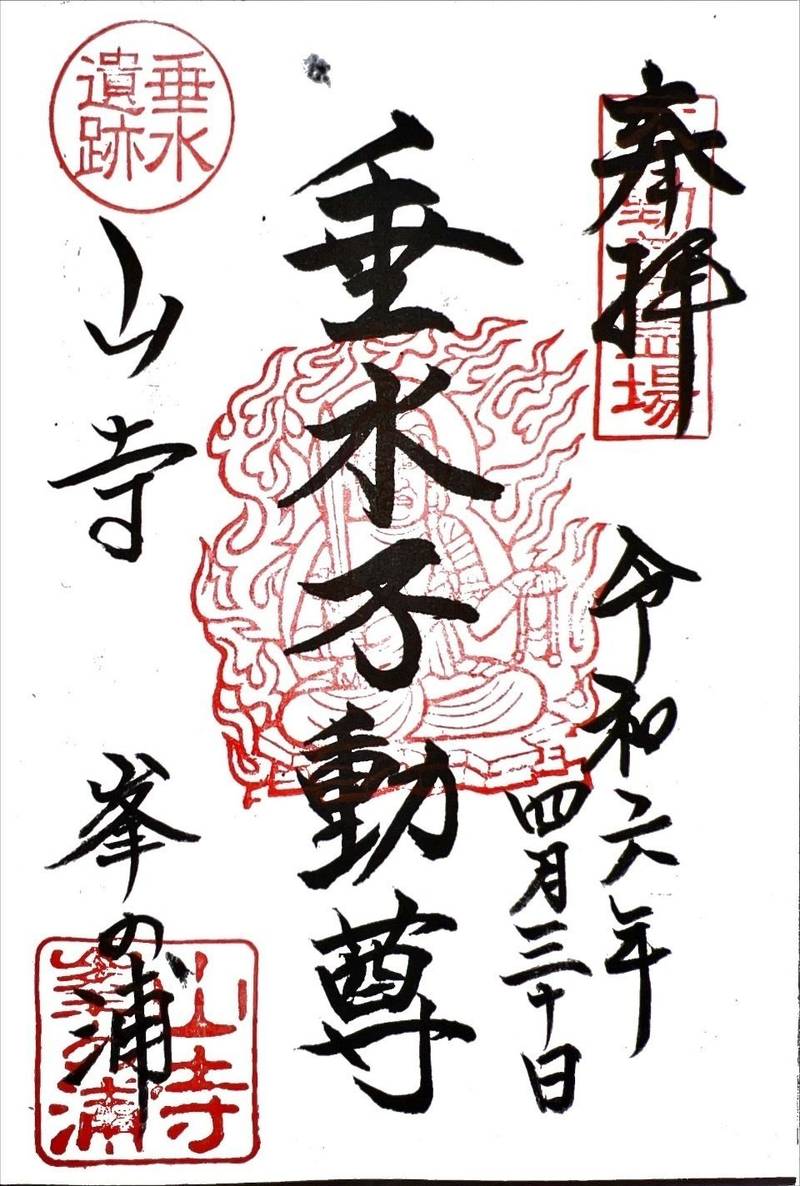 奉拝
令和六年
四月三十日
垂水不動尊
垂水
遺跡
山寺
峯の浦
山寺
峯の浦